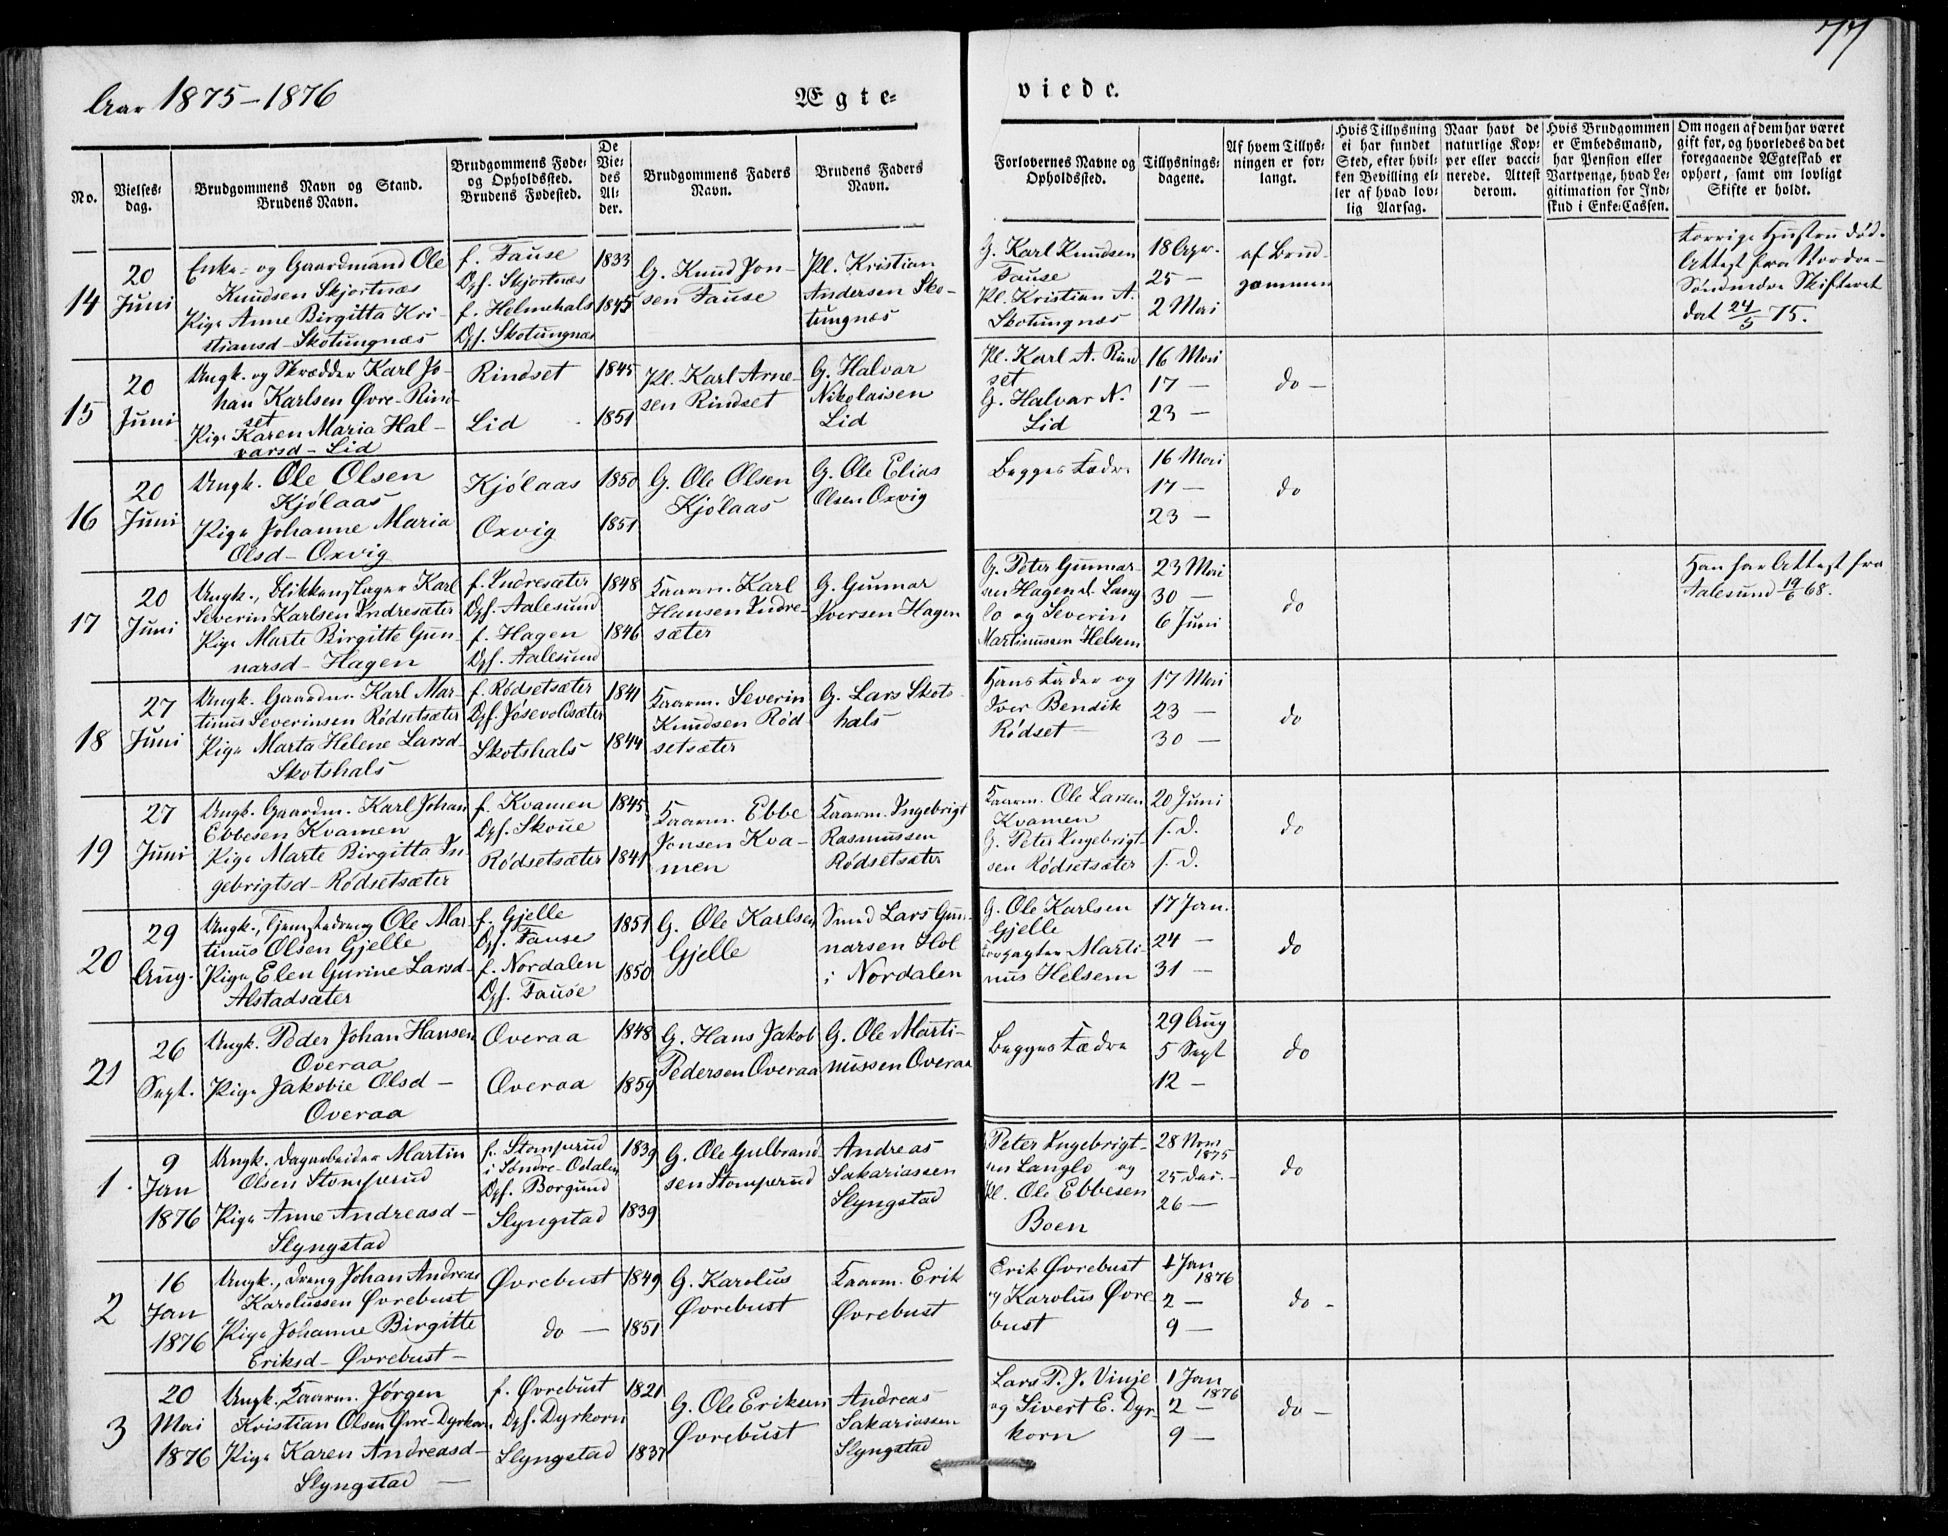 77
Aar 1875-1876
Ægte-
viede.
No.
Vielses-
dag.
Brudgommens Navn og Stand.
Brudens Navn.
Brudgommens Føde-
og Opholdssted.
Brudens Fødested.
De
Vie-
des
Al-
der.
Brudgommens Faders
Navn.
Brudens Faders
Navn.
Forlovernes Navne og
Opholdssted.
Tillysnings-
dagene.
Af hvem Tillys-
ningen er for-
langt.
Hvis Tillysning
ei har fundet
Sted, efter hvil-
ken Bevilling el-
ler af hvad lov-
lig Aarsag.
Naar havt de
naturlige Kop-
per eller vacci-
nerede. Attest
derom.
Hvis Brudgommen
er Embedsmand,
har Pension eller
Vartpenge, hvad Le-
gitimation for Ind-
skud i Enke-Cassen.
Om nogen af dem har været
gift før, og hvorledes da det
foregaaende Ægteskab er
ophørt, samt om lovligt
Skifte er holdt.
14
20
Juni
Enke- og Gaardmand Ole
Knudsen Skjortnæs
Pige Anne Birgitta Kri-
stiansd- Skotungnæs
f. Fause
Opf. Skjortnæs
f. Helmehals
Opf. Skotungnæs
1833
1845
G. Knud Jon-
sen Fause
Pl. Kristian
Andersen Sko-
tungnæs
G. Karl Knudsen
Fause
Pl. Kristian A.
Skotungnæs
18 Apr.
25 -
2 Mai
af Brud-
gommen
Forrige Hustru død.
Attest fra Nordre-
Søndmøre Skifteret
dat 24/5 75.
15
20
Juni
Ungk. og Skrædder Karl Jo-
han Karlsen Øvre-Rind-
set
Pige Karen Maria Hal-
varsd- Lid
Rindset
Lid
1845
1851
Pl. Karl Arne-
sen Rindset
G. Halvar
Nikolaisen
Lid
Pl. Karl A. Rind
set
G. Halvar N.
Lid
16 Mai
17 -
23 -
do -
16
20
Juni
Ungk. Ole Olsen
Kjølaas
Pige Johanne Maria
Olsd- Oxvig
Kjølaas
Oxvig
1850
1851
G. Ole Olsen
Kjølaas
G. Ole Elias
Olsen Oxvig
Begges Fædre
16 Mai
17 -
23 -
do
17
20
Juni
Ungk., Blikkenslager Karl
Severin Karlsen Indresæter
Pige Marte Birgitte Gun-
narsd- Hagen
f. Indresæter
Opf. Aalesund
f. Hagen
Opf. Aalesund
1848
1846
Kaarm. Karl
Hansen Indre-
sæter
G. Gunnar
Iversen Hagen
G. Peter Gunnar-
sen Hagen d. Lang
lo og Severin
Martinussen Helsem
23 Mai
30 -
6 Juni
do
Han har Attest fra
Aalesund 19/6 68.
18
27
Juni
Ungk. Gaardm. Karl Mar-
tinus Severinsen Rødsetsæter
Pige Marta Helene Larsd-
Skotshals
f. Rødsetsæter
Opf. Jøsevoldsæter
Skotshals
1841
1844
Kaarm. Severin
Knudsen Rød-
setsæter
G. Lars Skots-
hals
Hans Fader og
Iver Bendik
Rødset
17 Mai
23 -
30 -
do
19
27
Juni
Ungk. Gaardm. Karl Johan
Ebbesen Kvamen
Pige Marte Birgitta In-
gebrigtsd- Rødsetsæter
f. Kvamen
Opf. Skoue
Rødsetsæter
1845
1841
Kaarm. Ebbe
Jonsen Kva-
men
Kaarm. Ingebrigt
Rasmussen
Rødsetsæter
Kaarm. Ole Larsen
Kvamen
G. Peter Ingebrigt-
sen Rødsetsæter
20 Juni
s. d.
s. d.
do
20
29
Aug.
Ungk., Ole Mar-
tinus Olsen Gjelle
Pige Elen Gurine Larsd-
Alstadsæter
f. Gjelle
Opf. Fause
f. Nordalen
Opf. Fause
1851
1850
G. Ole Karlsen
Gjelle
Smed Lars Gun-
narsen Hol
i Nordalen
G. Ole Karlsen
Gjelle
Forpagter Marti-
nus Helsem
17 Jan.
24 -
31 -
do
21
26
Sept.
Ungk. Peder Johan Hansen
Overaa
Pige Jakobie Olsd -
Overaa
Overaa
Overaa
1848
1859
G. Hans Jakob
Pedersen Overaa
G. Ole Marti-
nussen Overaa
Begges Fædre
29 Aug
5 Sept
12 -
do
1.
9
Jan
1876
Ungk. Dagarbeider Martin
Olsen Stomperud
Pige Anne Andreasd -
Slyngstad
f. Stomperud
i Søndre-Odalen
Opf. Borgund
Slyngstad
1839
1839
G. Ole Gulbrand-
sen Stomperud
Andreas
Sakariassen
Slyngstad
Peter Ingebrigt-
sen Langlo og
Pl. Ole Ebbesen
Boen
28 Nov
1875
25 Dec. -
26 -
do
2
16
Jan
1876
Ungk., Dreng Johan Andreas
Karolussen Øvrebust
Pige Johanne Birgitte
Eriksd- Øvrebust -
Øvrebust
do -
1849
1851
G. Karolus
Øvrebust
Kaarm. Erik
Øvrebust
Erik Øvrebust
og Karolus Øvre-
bust
1 Jan
1876
2 -
9 -
do -
3
20
Mai
1876
Ungk. Kaarm. Jørgen
Kristian Olsen Øvre-Dyrkorn
Pige Karen Andreasd -
Slyngstad -
f. Øvrebust
Opf. Dyrkorn
Slyngstad
1821
1837
G. Ole Eriksen
Øvrebust
Andreas
Sakariassen
Slyngstad
Lars P. J. Vinje
og Sivert E. Dyr-
korn
1 Jan
1876
2 -
9 -
do -